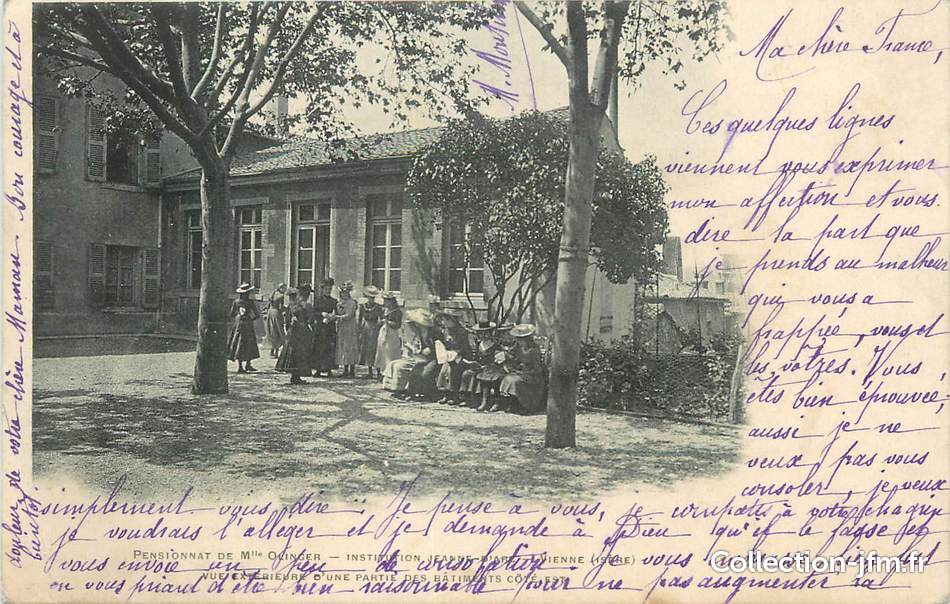 Ma chère France,
Ces quelques lignes
viennent vous exprimer
mon affection et vous
dire la part que
je prends au malheur
qui vous a
frappée, vous et
les vôtres. Vous
êtes bien éprouvée,
aussi je ne
veux pas vous
consoler, je veux
simplement vous dire : Je pense à vous, je compatis à votre chagrin
je voudrais l'alléger et je demande à Dieu qu'il le fasse et
PENSIONNAT DE Mlle OLINGER — INSTITUTION JEANNE-D'ARC — VIENNE (ISÈRE)
vous envoie un peu de consolation.
VUE EXTÉRIEURE D'UNE PARTIE DES BÂTIMENTS CÔTÉ EST
en vous priant d'être bien raisonnable pour ne pas augmenter la
douleur de votre chère Maman. Bon courage et à
bientôt
Collection-jfm.fr